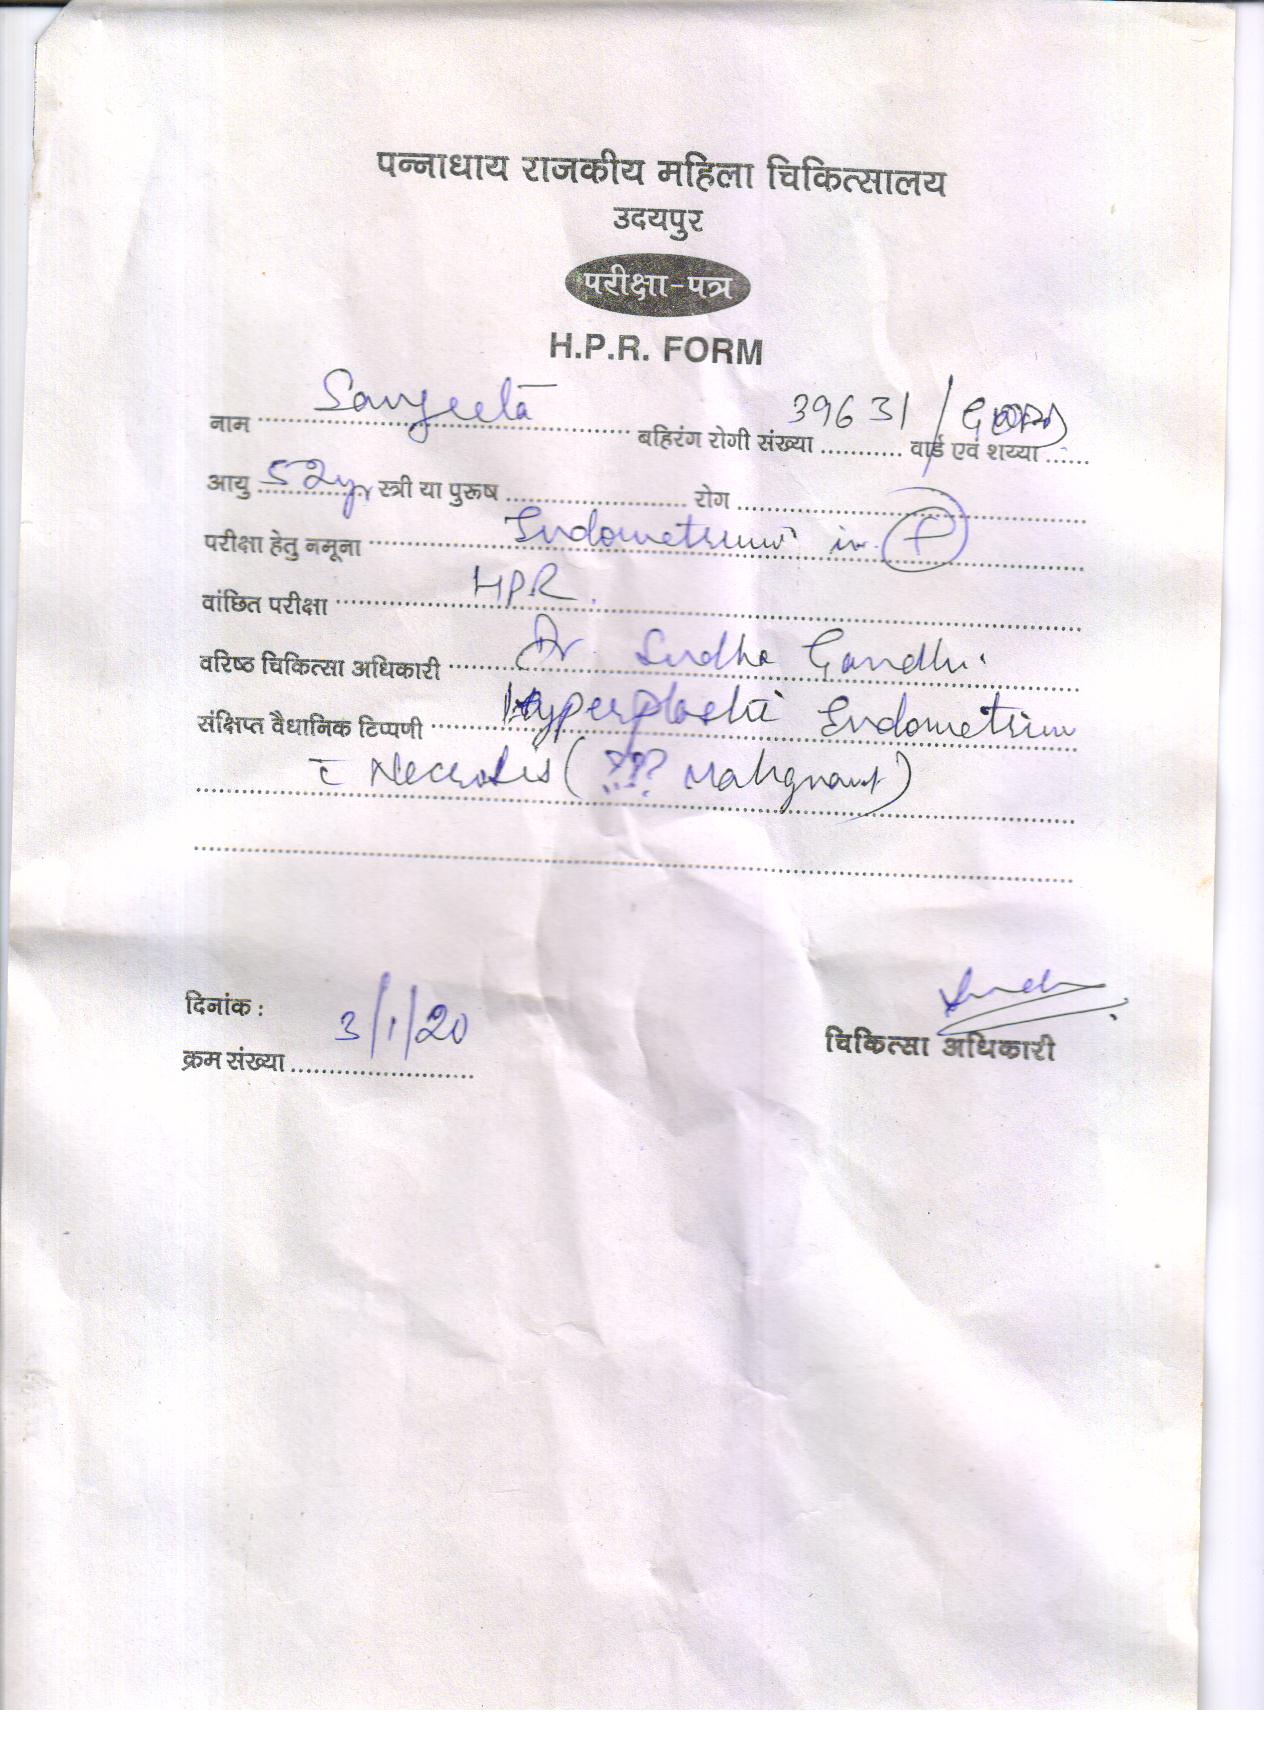 पन्नाधाय राजकीय महिला चिकित्सालय
उदयपुर
परीक्षा-पत्र
H.P.R. FORM
नाम Sangeeta बहिरंग रोगी संख्या 39631 / वार्ड एवं शय्या
आयु 52yr स्त्री या पुरूष रोग
परीक्षा हेतु नमूना Endometrium in F
वांछित परीक्षा HPR.
वरिष्ठ चिकित्सा अधिकारी Dr. Sudha Gandhi
संक्षिप्त वैधानिक टिप्पणी Hyperplastic Endometrium
c̄ Necrosis (??? Malignant)
दिनांक : 3/1/20
क्रम संख्या
चिकित्सा अधिकारी